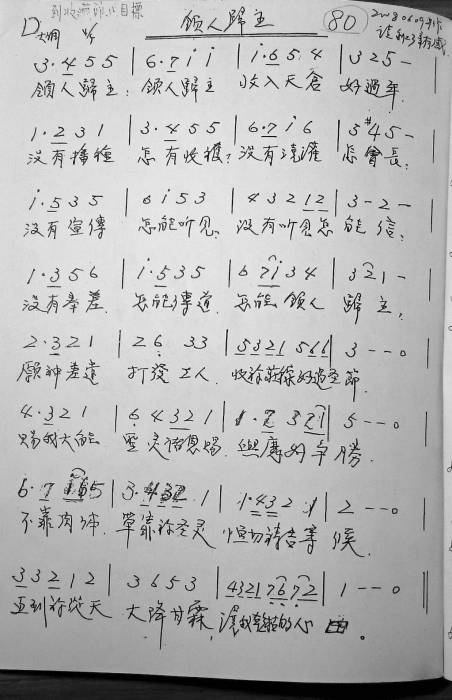 領人歸主 80 2008.06.09
D大調 4/4
3·455 | 6·7i i | i·654 | 325-
領人歸主; 領人歸主 收入天倉 好過年.
1·231 | 3·455 | 6·7i6 | 5#45-
沒有播種 怎有收穫? 沒有澆灌 怎會長;
i·535 | 6i53 | 43212 | 3-2-
沒有宣傳 怎能听见. 沒有听见怎 能信;
1·356 | i·535 | 67i34 | 321-
沒有奉差. 怎能傳道. 怎能領人 歸主,
2·321 | 26 33 | 5321 566 | 3--0
願神差遣 打發工人. 收祢莊稼好過 節
4·321 | 64321 | 1·2 327 | 5--0
賜我大能 聖灵諸恩賜.
6·7 5 | 3· 1 | 1·432 | 2--0
不靠肉体. 單靠祢圣灵 恒切禱告等候.
33212 | 3653 | 4321 7672 | 1--0
直到祢從天 大降甘霖, 讓我 的心田。